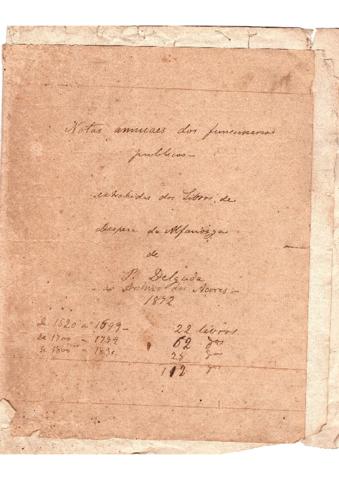 Notas annuaes dos funcionarios
publicos
extrahidas dos Livros de
Despesa da Alfandega
de
P. Delgada
Archivo dos Açores
1872
De 1520 a 1699 - 22 livros
De 1700 - 1799 62 dos
De 1800 - 1831 28 dos
112 dos